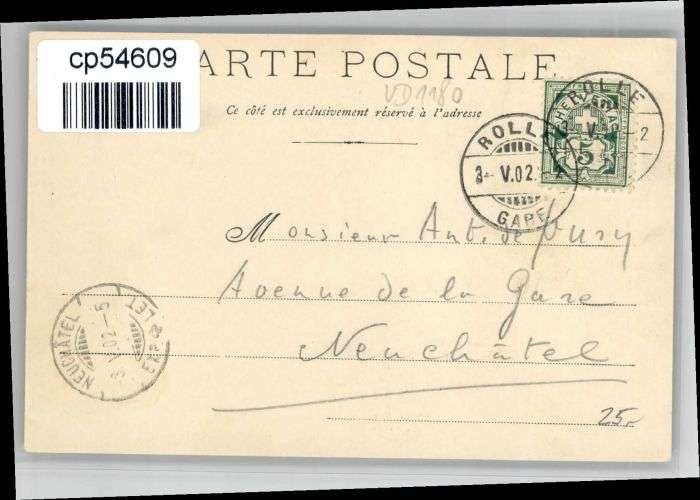 cp54609
CARTE POSTALE
VD1180
Ce côté est exclusivement réservé à l'adresse
ROLLE
3- V.02.
GARE
ROLLE
V
2
HELVETIA
5
Monsieur Ant. de Pury
Avenue de la Gare
Neuchâtel
NEUCHÂTEL
3 V.02-5
EXP. LET
25.-